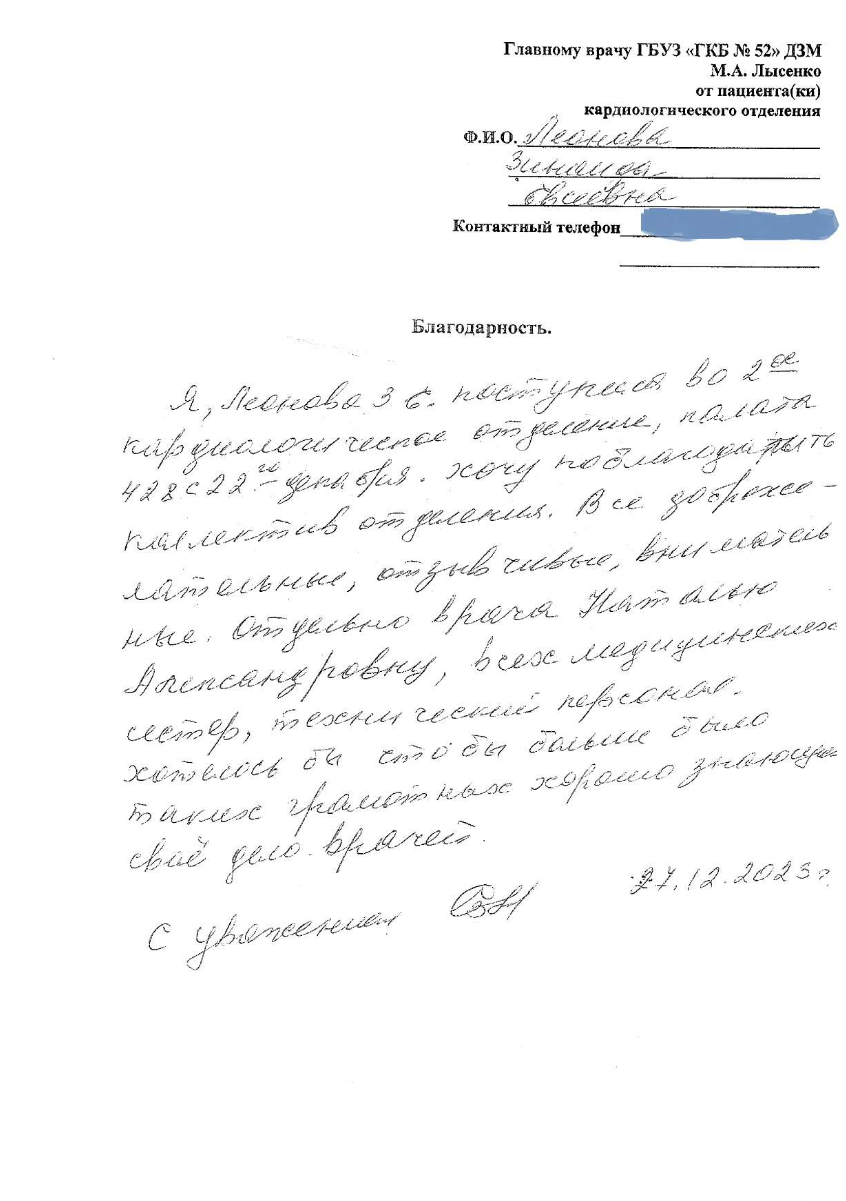 Главному врачу ГБУЗ «ГКБ № 52» ДЗМ
М.А. Лысенко
от пациента(ки)
кардиологического отделения
Ф.И.О. Леонова
Зинаида
Евсеевна
Контактный телефон
Благодарность.
Я, Леонова З Е. поступила во 2ое
кардиологическое отделение, палата
428 с 22го декабря. хочу поблагодарить
коллектив отделения. Все доброже-
лательные, отзывчивые, вниматель
ные. Отдельно врача Наталью
Александровну, всех медицинских
сестер, технический персонал.
хотелось бы что бы больше было
таких грамотных хорошо знающих
своё дело врачей.
27.12.2023г
С уважением